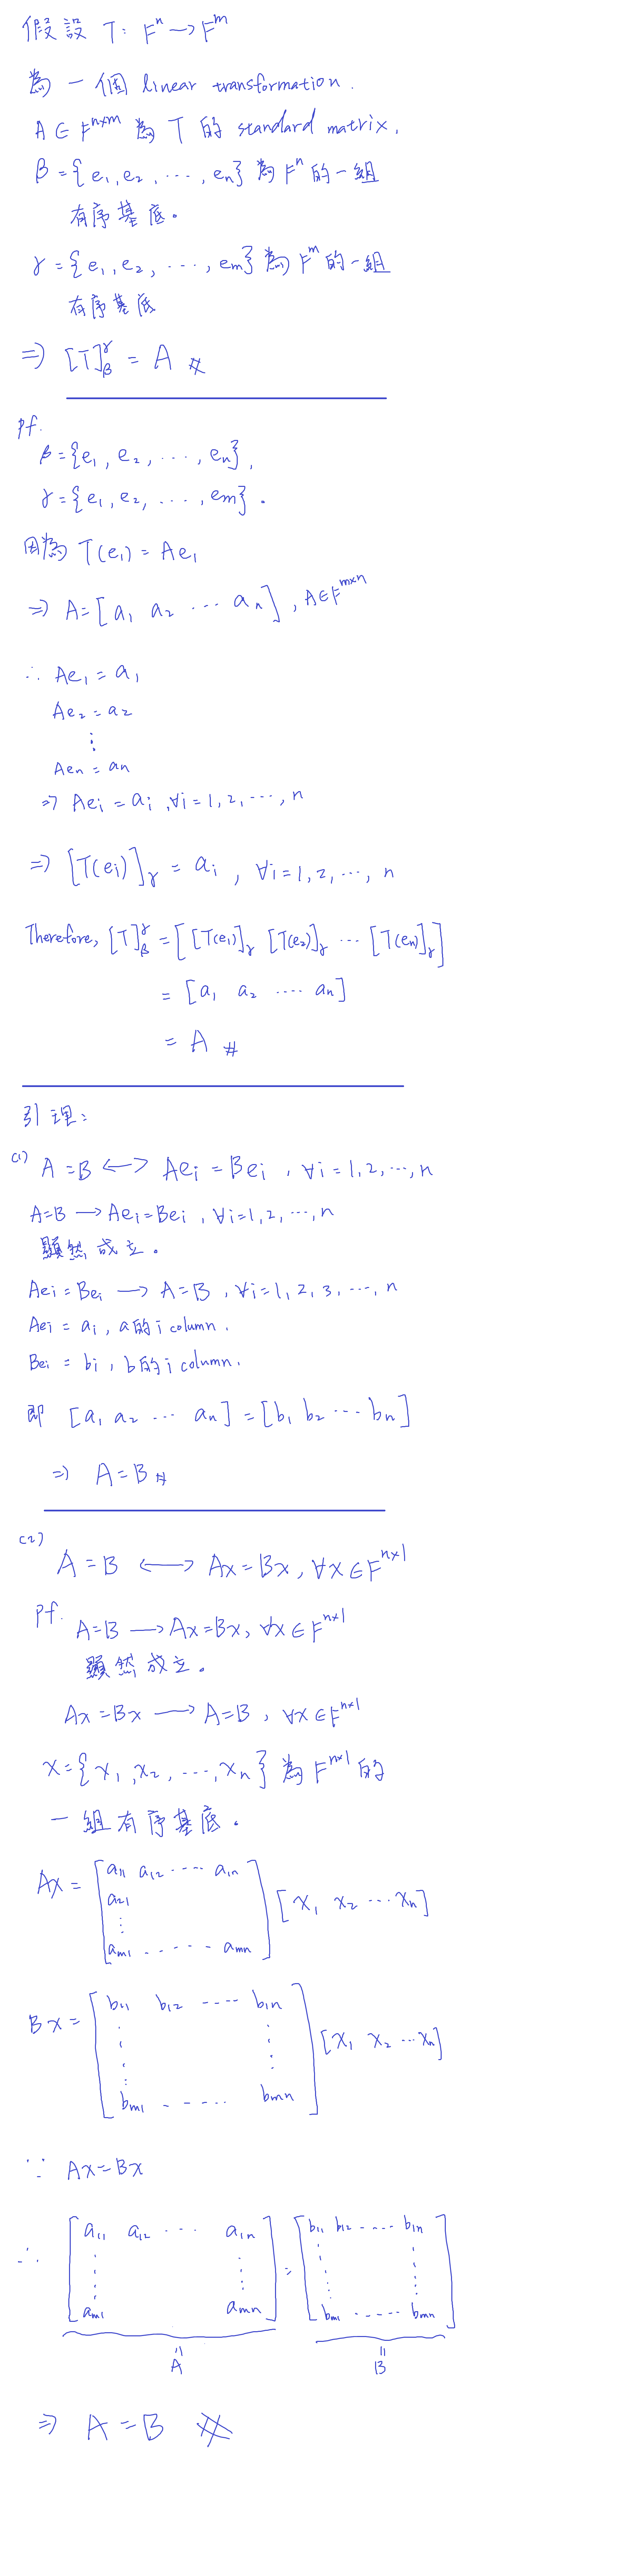 假設 T: Fⁿ→Fᵐ
為一個 linear transformation.
A∈Fⁿˣᵐ 為 T 的 standard matrix.
β={e₁,e₂,⋯,eₙ} 為 Fⁿ 的一組
有序基底。
γ={e₁,e₂,⋯,eₘ} 為 Fᵐ 的一組
有序基底
⇒ [T]_β^γ = A #
pf.
β={e₁,e₂,⋯,eₙ},
γ={e₁,e₂,⋯,eₘ}.
因為 T(e₁)=Ae₁
⇒ A=[a₁ a₂ ⋯ aₙ], A∈Fᵐˣⁿ
∴ Ae₁=a₁
Ae₂=a₂
⋮
Aeₙ=aₙ
⇒ Aeᵢ=aᵢ,∀i=1,2,⋯,n
⇒ [T(eᵢ)]_γ = aᵢ, ∀i=1,2,⋯,n
Therefore, [T]_β^γ=[[T(e₁)]_γ [T(e₂)]_γ ⋯ [T(eₙ)]_γ]
= [a₁ a₂ ⋯⋯ aₙ]
= A #
引理:
(1) A=B ⟷ Aeᵢ=Beᵢ, ∀i=1,2,⋯,n
A=B ⟶ Aeᵢ=Beᵢ, ∀i=1,2,⋯,n
顯然成立。
Aeᵢ=Beᵢ ⟶ A=B, ∀i=1,2,3,⋯,n
Aeᵢ = aᵢ, a的i column.
Beᵢ = bᵢ, b的i column.
即 [a₁ a₂ ⋯ aₙ]=[b₁ b₂ ⋯ bₙ]
⇒ A=B #
(2)
A=B ⟷ Ax=Bx, ∀x∈Fⁿˣ¹
pf. A=B ⟶ Ax=Bx, ∀x∈Fⁿˣ¹
顯然成立。
Ax=Bx ⟶ A=B, ∀x∈Fⁿˣ¹
x={x₁,x₂,⋯,xₙ} 為 Fⁿˣ¹ 的
一組有序基底。
Ax = [a₁₁ a₁₂ ⋯⋯ a₁ₙ
a₂₁
⋮
aₘ₁ ⋯⋯ aₘₙ] [x₁ x₂ ⋯ xₙ]
Bx = [b₁₁ b₁₂ ⋯⋯ b₁ₙ
⋮ ⋮
bₘ₁ ⋯⋯ bₘₙ] [x₁ x₂ ⋯ xₙ]
∵ Ax=Bx
∴ [a₁₁ a₁₂ ⋯ a₁ₙ = [b₁₁ b₁₂ ⋯⋯ b₁ₙ
⋮ ⋮ ⋮ ⋮
aₘ₁ aₘₙ] bₘ₁ ⋯⋯ bₘₙ]
= =
A B
⇒ A=B #